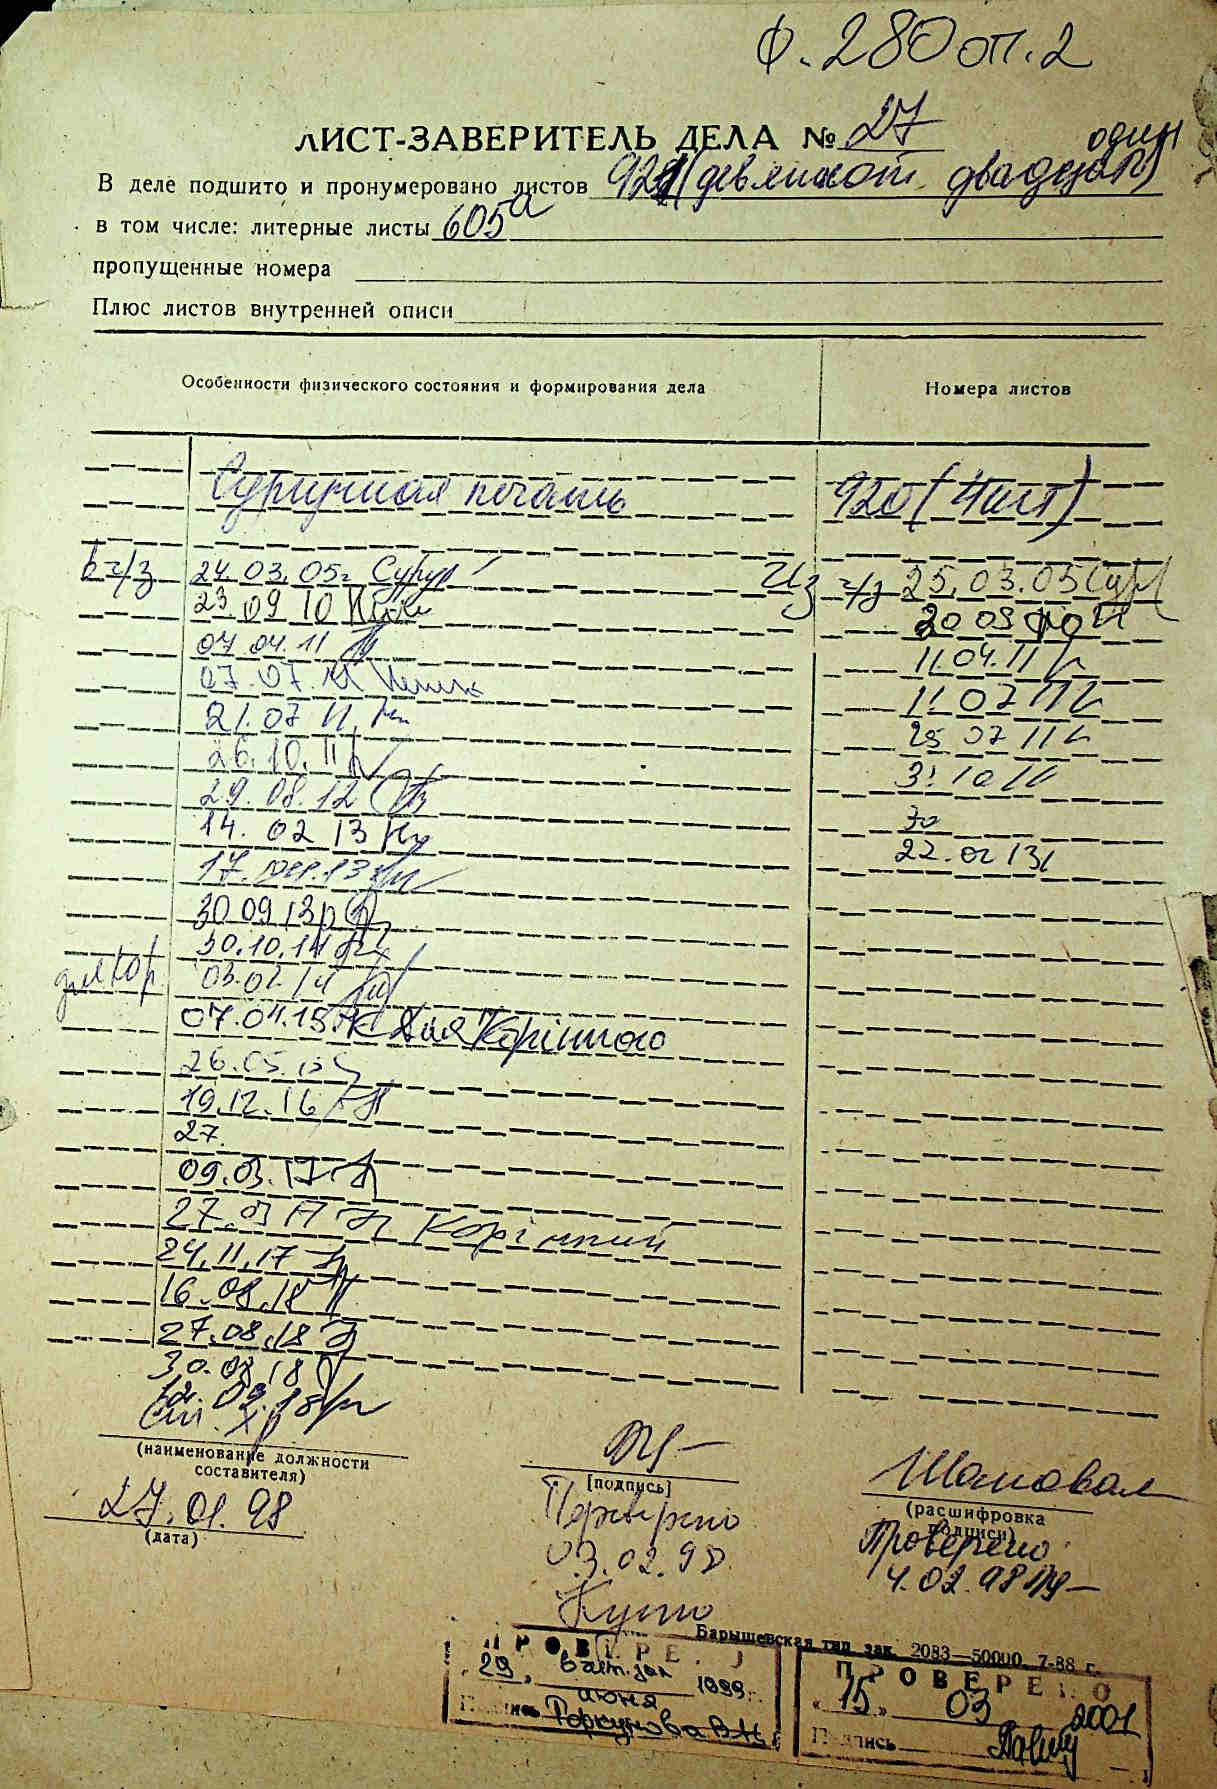 ф. 280 оп. 2
ЛИСТ-ЗАВЕРИТЕЛЬ ДЕЛА № 27
один
В деле подшито и пронумеровано листов 921 (девятьсот двадцать)
в том числе: литерные листы 605а
пропущенные номера
Плюс листов внутренней описи
Особенности физического состояния и формирования дела Номера листов
Сургучная печать 920 (4 шт)
в ч/з 24.03.05г. Из ч/з 25.03.05
23.09 10
07.04.11 11.04.11
07.07.11 11.07 11
21.07 11 25 07 11
26.10.11 31 10 11
29.08.12 30
14.02 13 22.02 13
17.
30 09 13р
30.10.14
для Кор. 03.02.14
07.04.15 для Корінного
26.05.15
19.12.16
27.
09.03.17
27.03 17 Корінний
24.11.17
16.08.18
27.08.18
30.08.18
12.09.18
Ст. хр
(наименование должности
составителя)
[подпись]
Шаповал
(расшифровка
подписи)
27.01.98
(дата)
Проверено
03.02.98
Проверено
4.02.98
Барышевская тип. зак. 2083—50000. 7-88 г.
ПРОВЕРЕНО
29. в чит. зал
июня 1999 г.
Подпись Торкунова В.Н.
ПРОВЕРЕНО
«15» 03 2001
Подпись